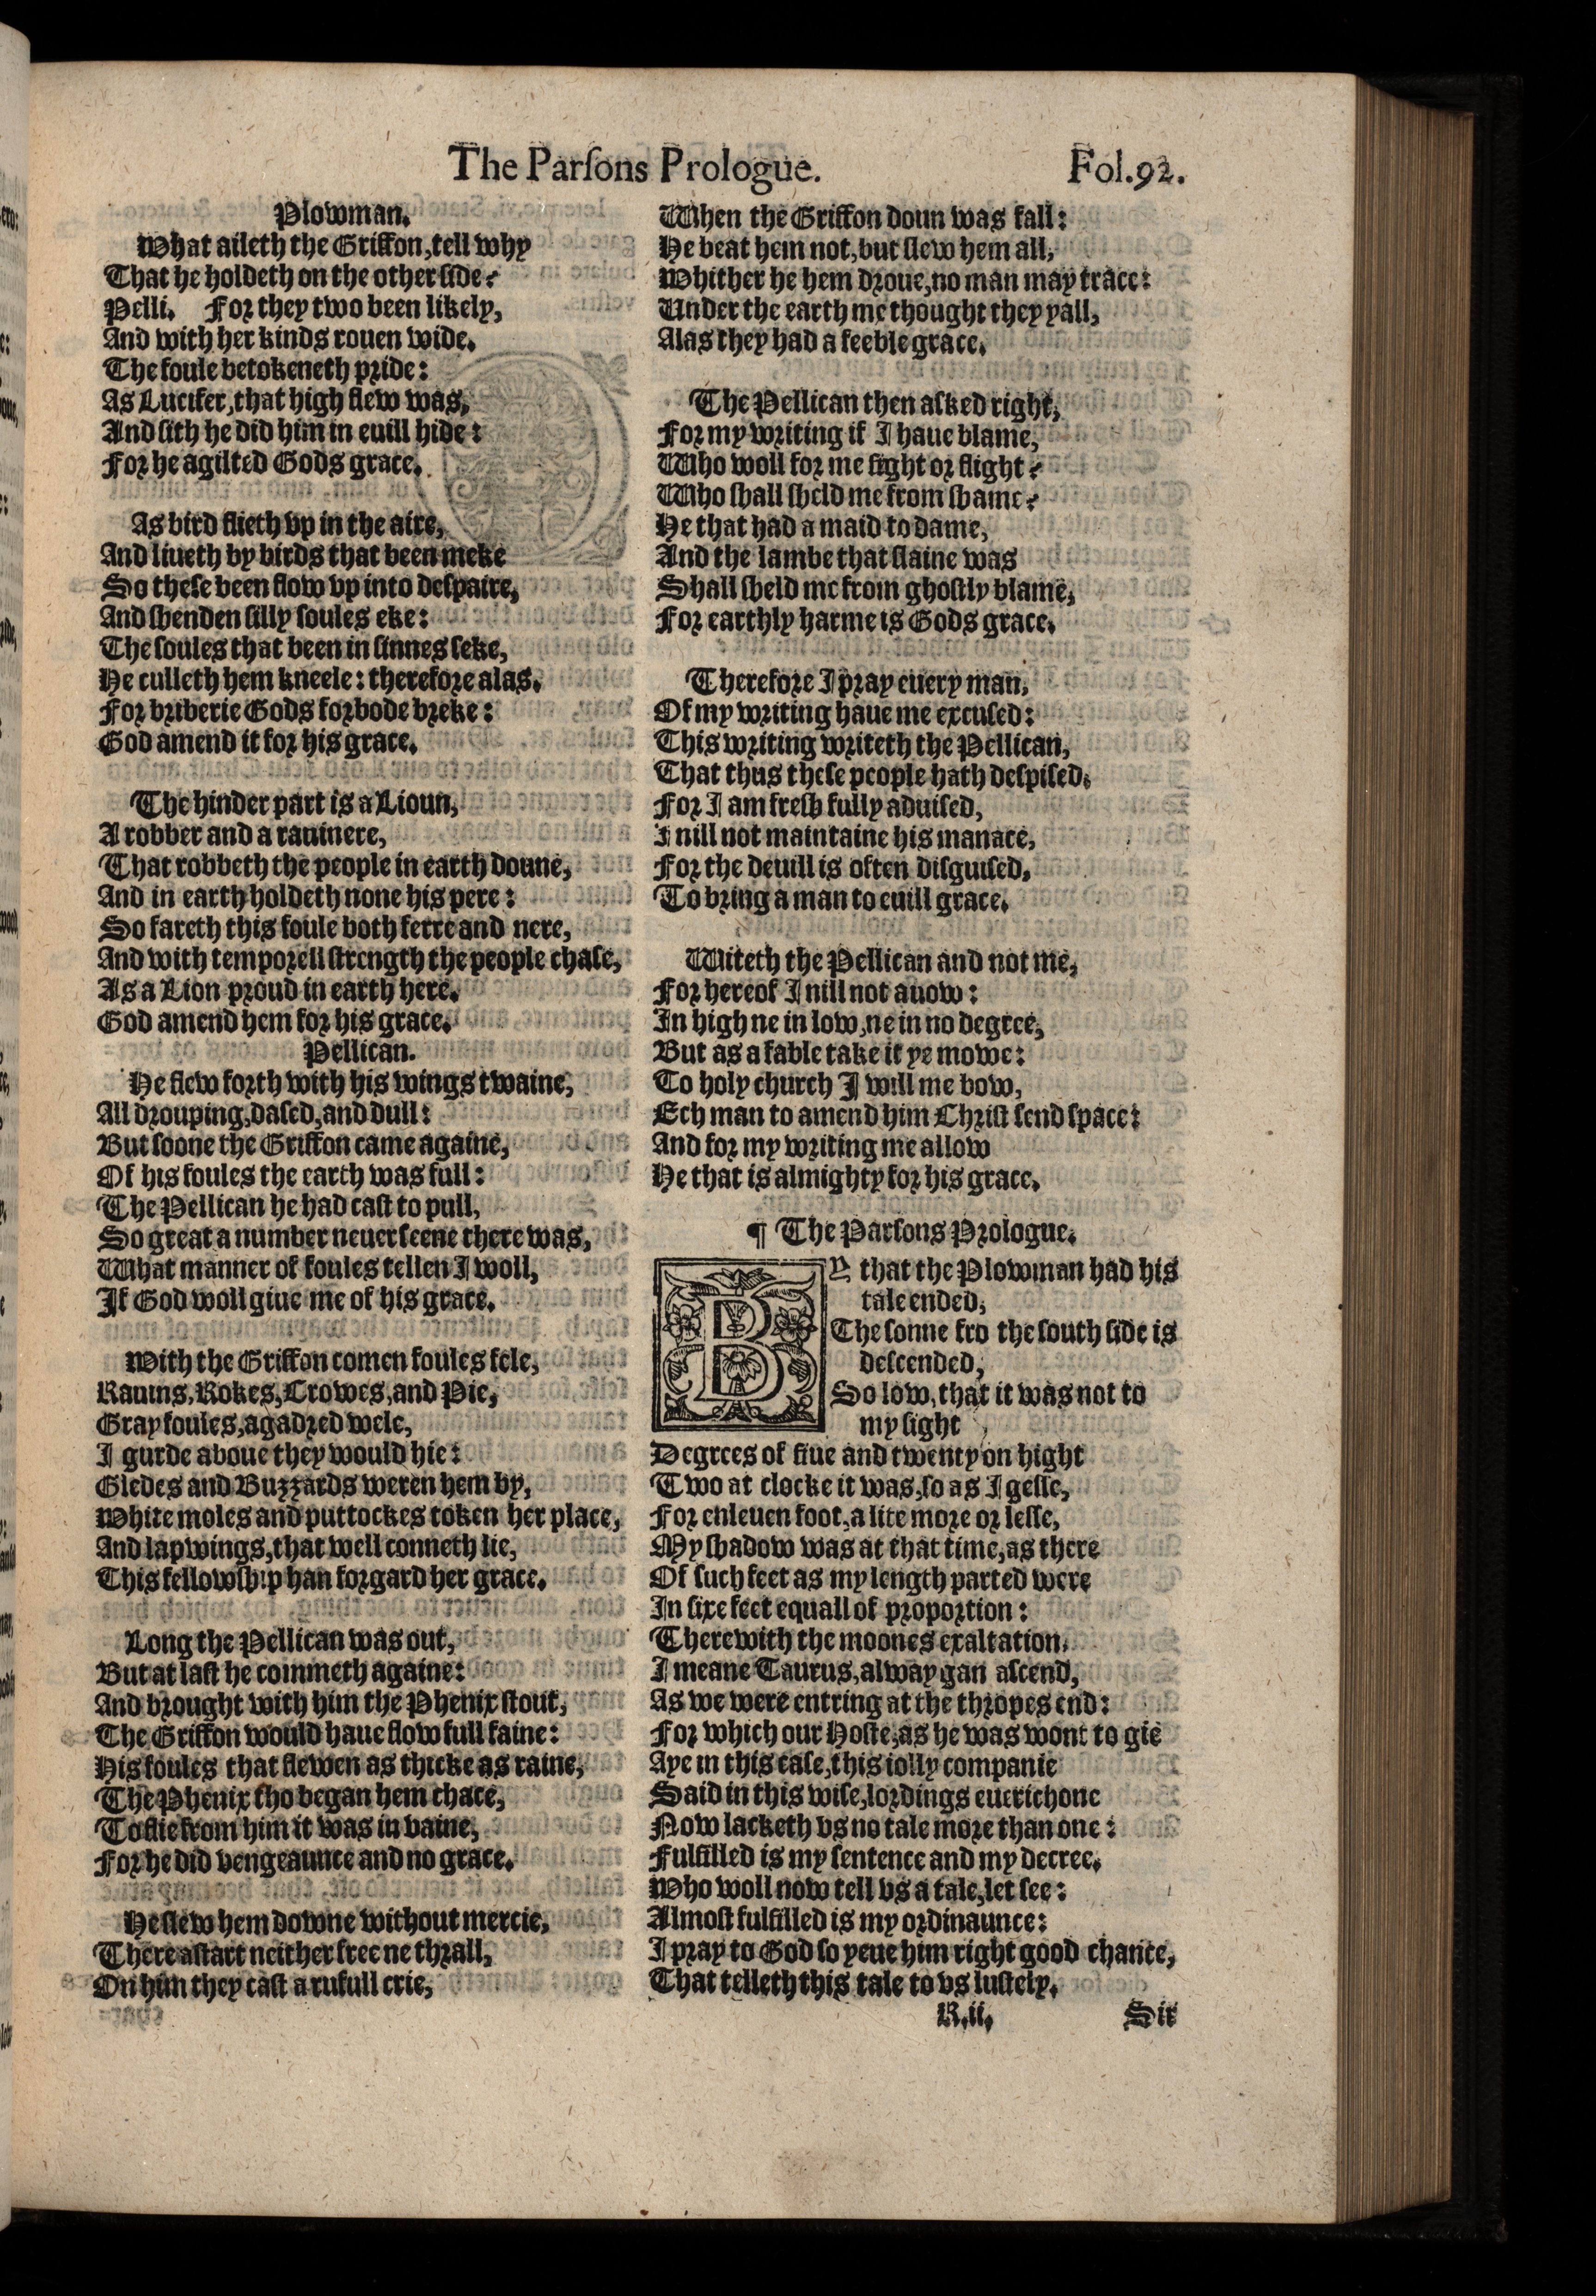 The Parſons Prologue.
Fol.92.
Plowman.
What aileth the Griffon, tell why
That he holdeth on the other ſide?
Pelli. For they two been likely,
And with her kinds rouen wide.
The foule betokeneth pride:
As Lucifer, that high flew was,
And ſith he did him in euill hide:
For he agilted Gods grace.
As bird flieth vp in the aire,
And liueth by birds that been meke
So theſe been flow vp into deſpaire,
And ſhenden ſilly ſoules eke:
The ſoules that been in ſinnes ſeke,
He culleth hem kneele: therefore alas.
For briberie Gods forbode breke:
God amend it for his grace.
The hinder part is a Lioun,
A robber and a rauinere,
That robbeth the people in earth doune,
And in earth holdeth none his pere:
So fareth this foule both ferre and nere,
And with temporell ſtrength the people chaſe,
As a Lion proud in earth here.
God amend hem for his grace.
Pellican.
He flew forth with his wings twaine,
All drouping, daſed, and dull:
But ſoone the Griffon came againe,
Of his foules the earth was full:
The Pellican he had caſt to pull,
So great a number neuer ſeene there was,
What manner of foules tellen I woll,
If God woll giue me of his grace.
With the Griffon comen foules fele,
Rauins, Rokes, Crowes, and Pie,
Gray foules, agadred wele,
I gurde aboue they would hie:
Gledes and Buzzards weren hem by,
White moles and puttockes token her place,
And lapwings, that well conneth lie,
This fellowſhip han forgard her grace.
Long the Pellican was out,
But at laſt he commeth againe:
And brought with him the Phenix ſtout,
The Griffon would haue flow full faine:
His foules that flewen as thicke as raine,
The Phenix tho began hem chace,
To flie from him it was in vaine,
For he did vengeaunce and no grace.
He ſlew hem downe without mercie,
There aſtart neither free ne thrall,
On him they caſt a rufull crie,
When the Griffon doun was fall:
He beat hem not, but ſlew hem all,
Whither he hem droue, no man may trace:
Under the earth me thought they yall,
Alas they had a feeble grace.
The Pellican then aſked right,
For my writing if I haue blame,
Who woll for me fight or flight?
Who ſhall ſheld me from ſhame?
He that had a maid to dame,
And the lambe that ſlaine was
Shall ſheld me from ghoſtly blame,
For earthly harme is Gods grace.
Therefore I pray euery man,
Of my writing haue me excuſed:
This writing writeth the Pellican,
That thus theſe people hath deſpiſed.
For I am freſh fully aduiſed,
I nill not maintaine his manace,
For the deuill is often diſguiſed,
To bring a man to euill grace.
Witeth the Pellican and not me,
For hereof I nill not auow:
In high ne in low, ne in no degree,
But as a fable take it ye mowe:
To holy church I will me bow,
Ech man to amend him Chriſt ſend ſpace:
And for my writing me allow
He that is almighty for his grace.
¶ The Parſons Prologue.
BY that the Plowman had his
tale ended,
The ſonne fro the ſouth ſide is
deſcended,
So low, that it was not to
my ſight
Degrees of fiue and twenty on hight
Two at clocke it was, ſo as I geſſe,
For enleuen foot, a lite more or leſſe,
My ſhadow was at that time, as there
Of ſuch feet as my length parted were
In ſixe feet equall of proportion:
Therewith the moones exaltation,
I meane Taurus, alway gan aſcend,
As we were entring at the thropes end:
For which our Hoſte, as he was wont to gie
Aye in this caſe, this iolly companie
Said in this wiſe, lordings euerichone
Now lacketh vs no tale more than one:
Fulfilled is my ſentence and my decree.
Who woll now tell vs a tale, let ſee:
Almoſt fulfilled is my ordinaunce:
I pray to God ſo yeue him right good chance,
That telleth this tale to vs luſtely.
R.ii.
Sir